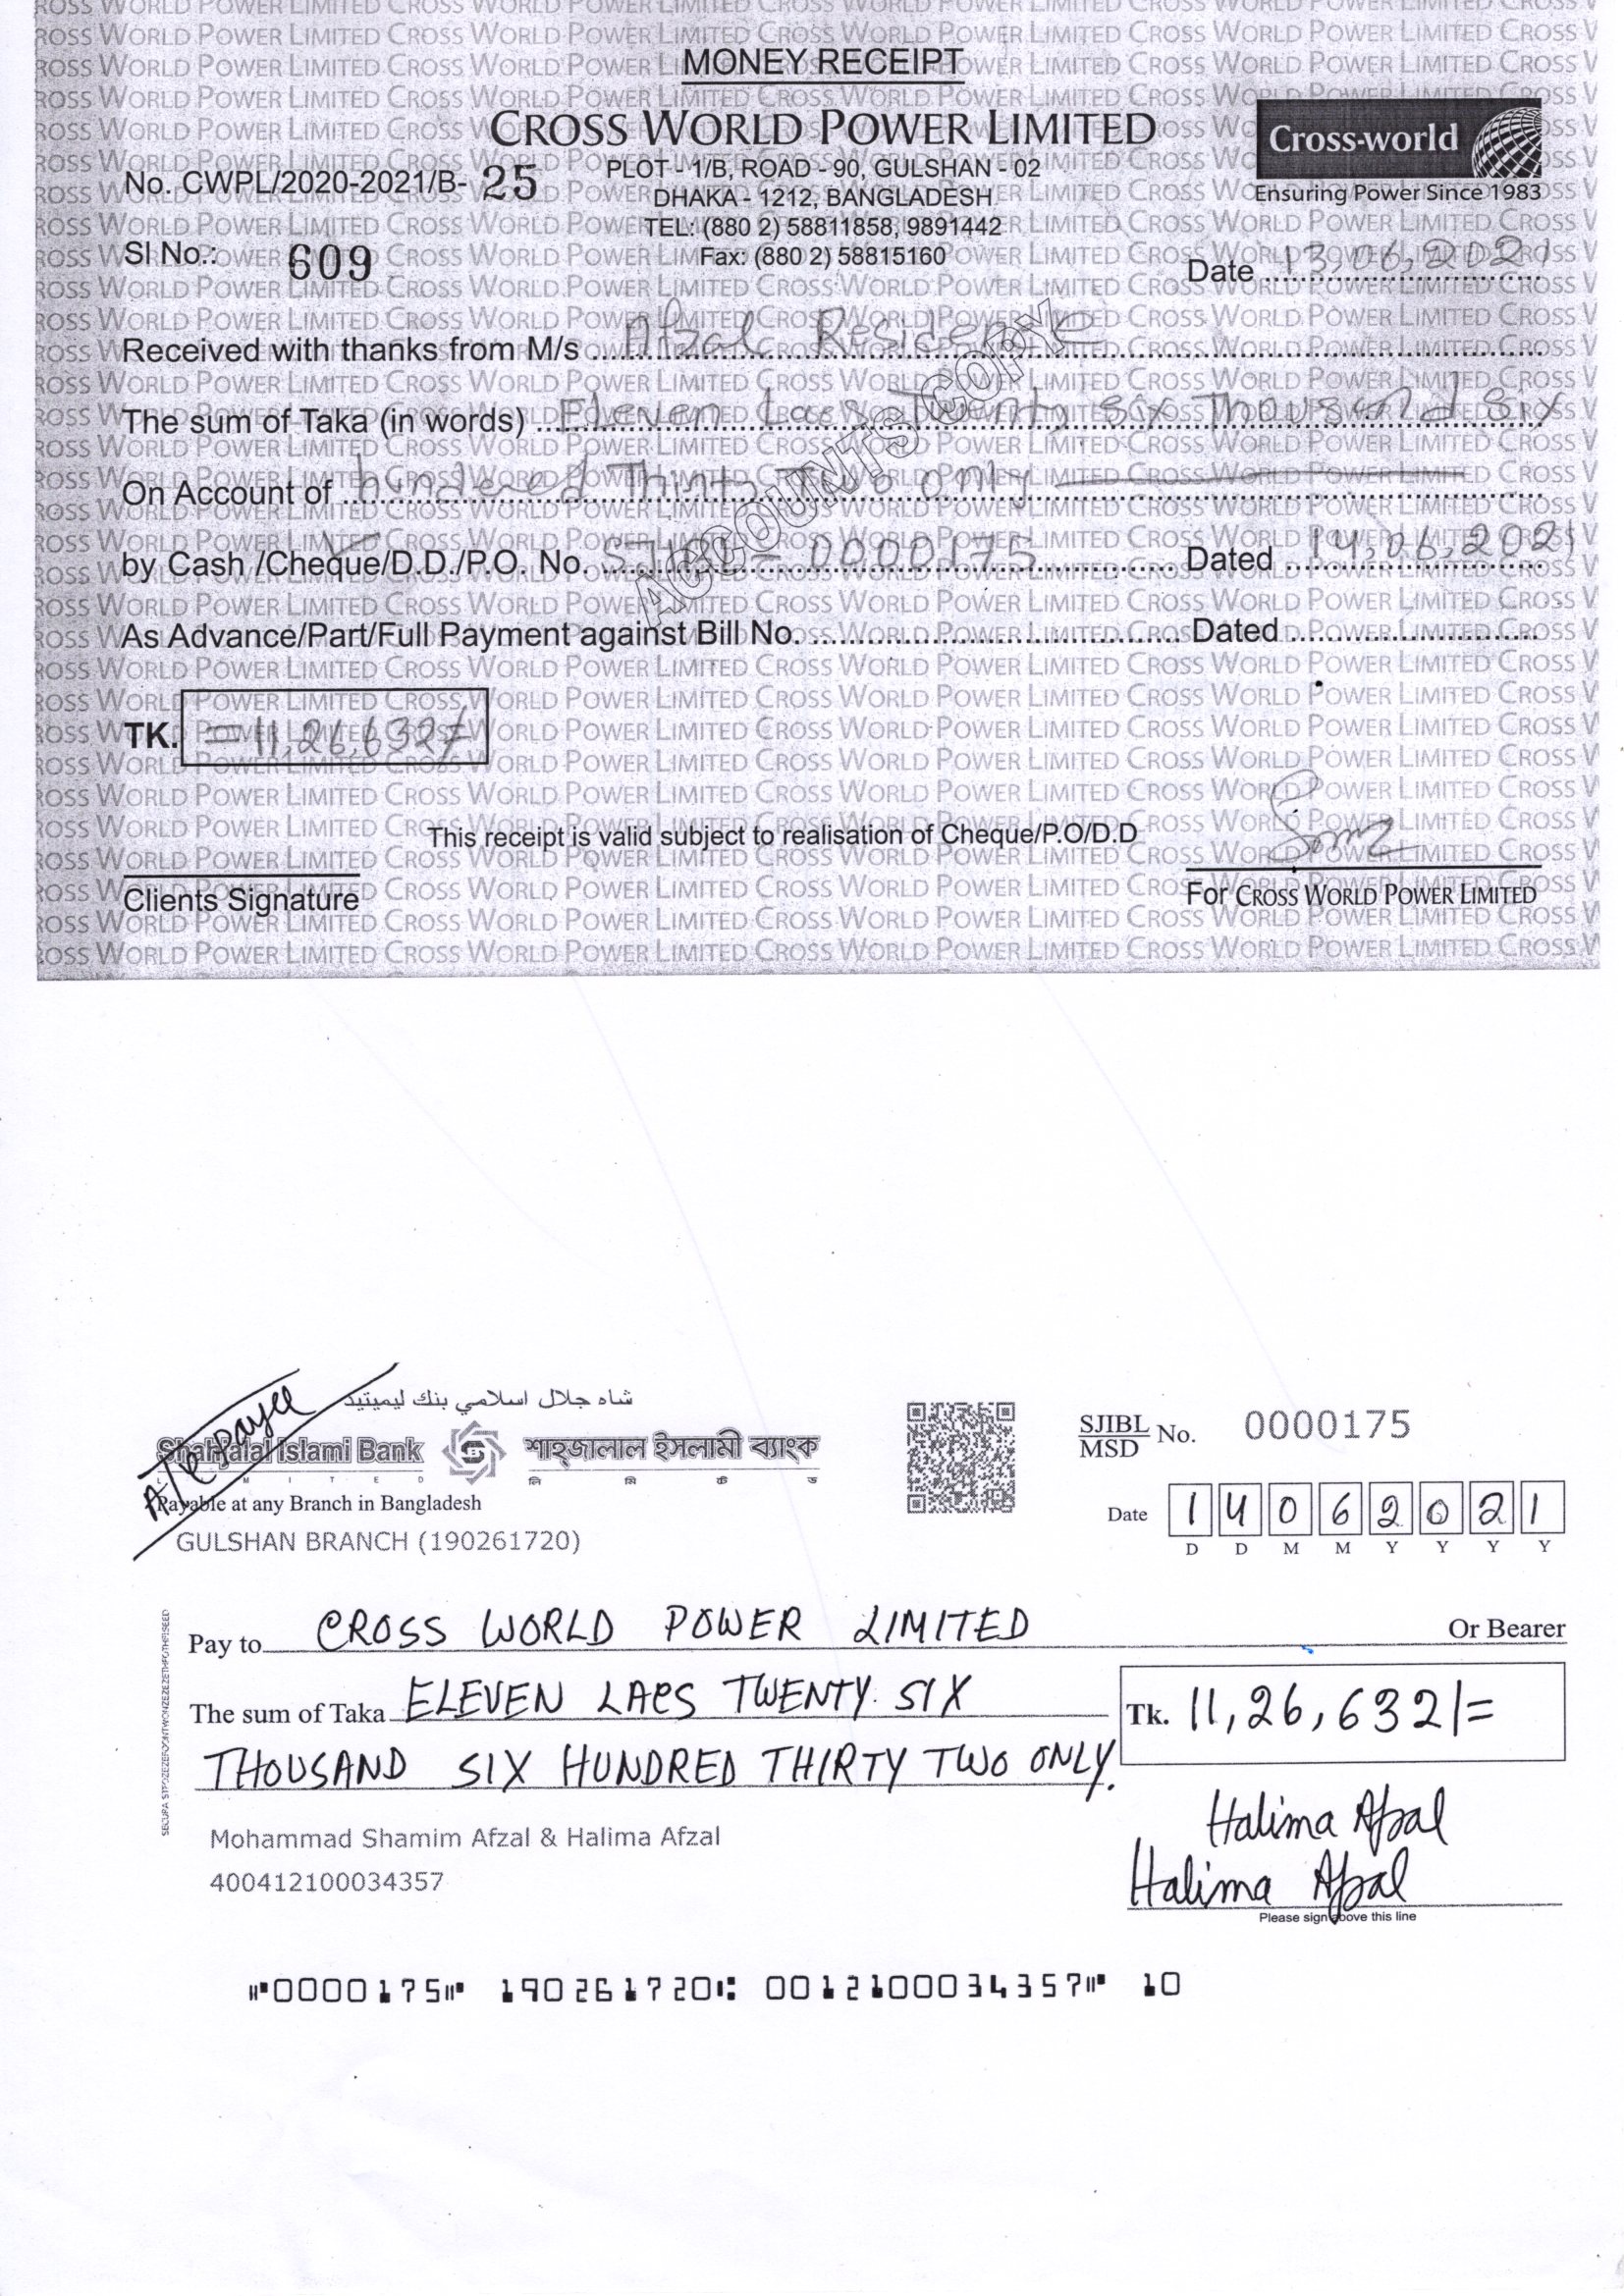 MONEY RECEIPT
CROSS WORLD POWER LIMITED
Cross-world
Ensuring Power Since 1983
No. CWPL/2020-2021/B- 25
PLOT - 1/B, ROAD - 90, GULSHAN - 02
DHAKA - 1212, BANGLADESH
TEL: (880 2) 58811858, 9891442
Fax: (880 2) 58815160
Sl No.: 609
Date 13,06,2021
Received with thanks from M/s Afzal Residence
The sum of Taka (in words) Eleven Lacs Twenty six Thousand six
On Account of hundered Thirty Two only
by Cash /Cheque/D.D./P.O. No. SJIBL - 0000175 Dated 14,06,2021
As Advance/Part/Full Payment against Bill No. Dated
ACCOUNTS COPY
TK. =11,26,632/=
This receipt is valid subject to realisation of Cheque/P.O/D.D
Clients Signature
For CROSS WORLD POWER LIMITED
A/c payee
شاه جلال اسلامي بنك ليميتيد
Shahjalal Islami Bank
LIMITED
শাহ্জালাল ইসলামী ব্যাংক
লি মি টে ড
Payable at any Branch in Bangladesh
GULSHAN BRANCH (190261720)
SJIBL
MSD No. 0000175
Date 1 4 0 6 2 0 2 1
D D M M Y Y Y Y
Pay to CROSS WORLD POWER LIMITED Or Bearer
The sum of Taka ELEVEN LACS TWENTY SIX
THOUSAND SIX HUNDRED THIRTY TWO ONLY.
Tk. 11,26,632/=
Mohammad Shamim Afzal & Halima Afzal
400412100034357
Halima Afzal
Halima Afzal
Please sign above this line
⑈0000175⑈ 190261720⑆ 0012100034357⑈ 10